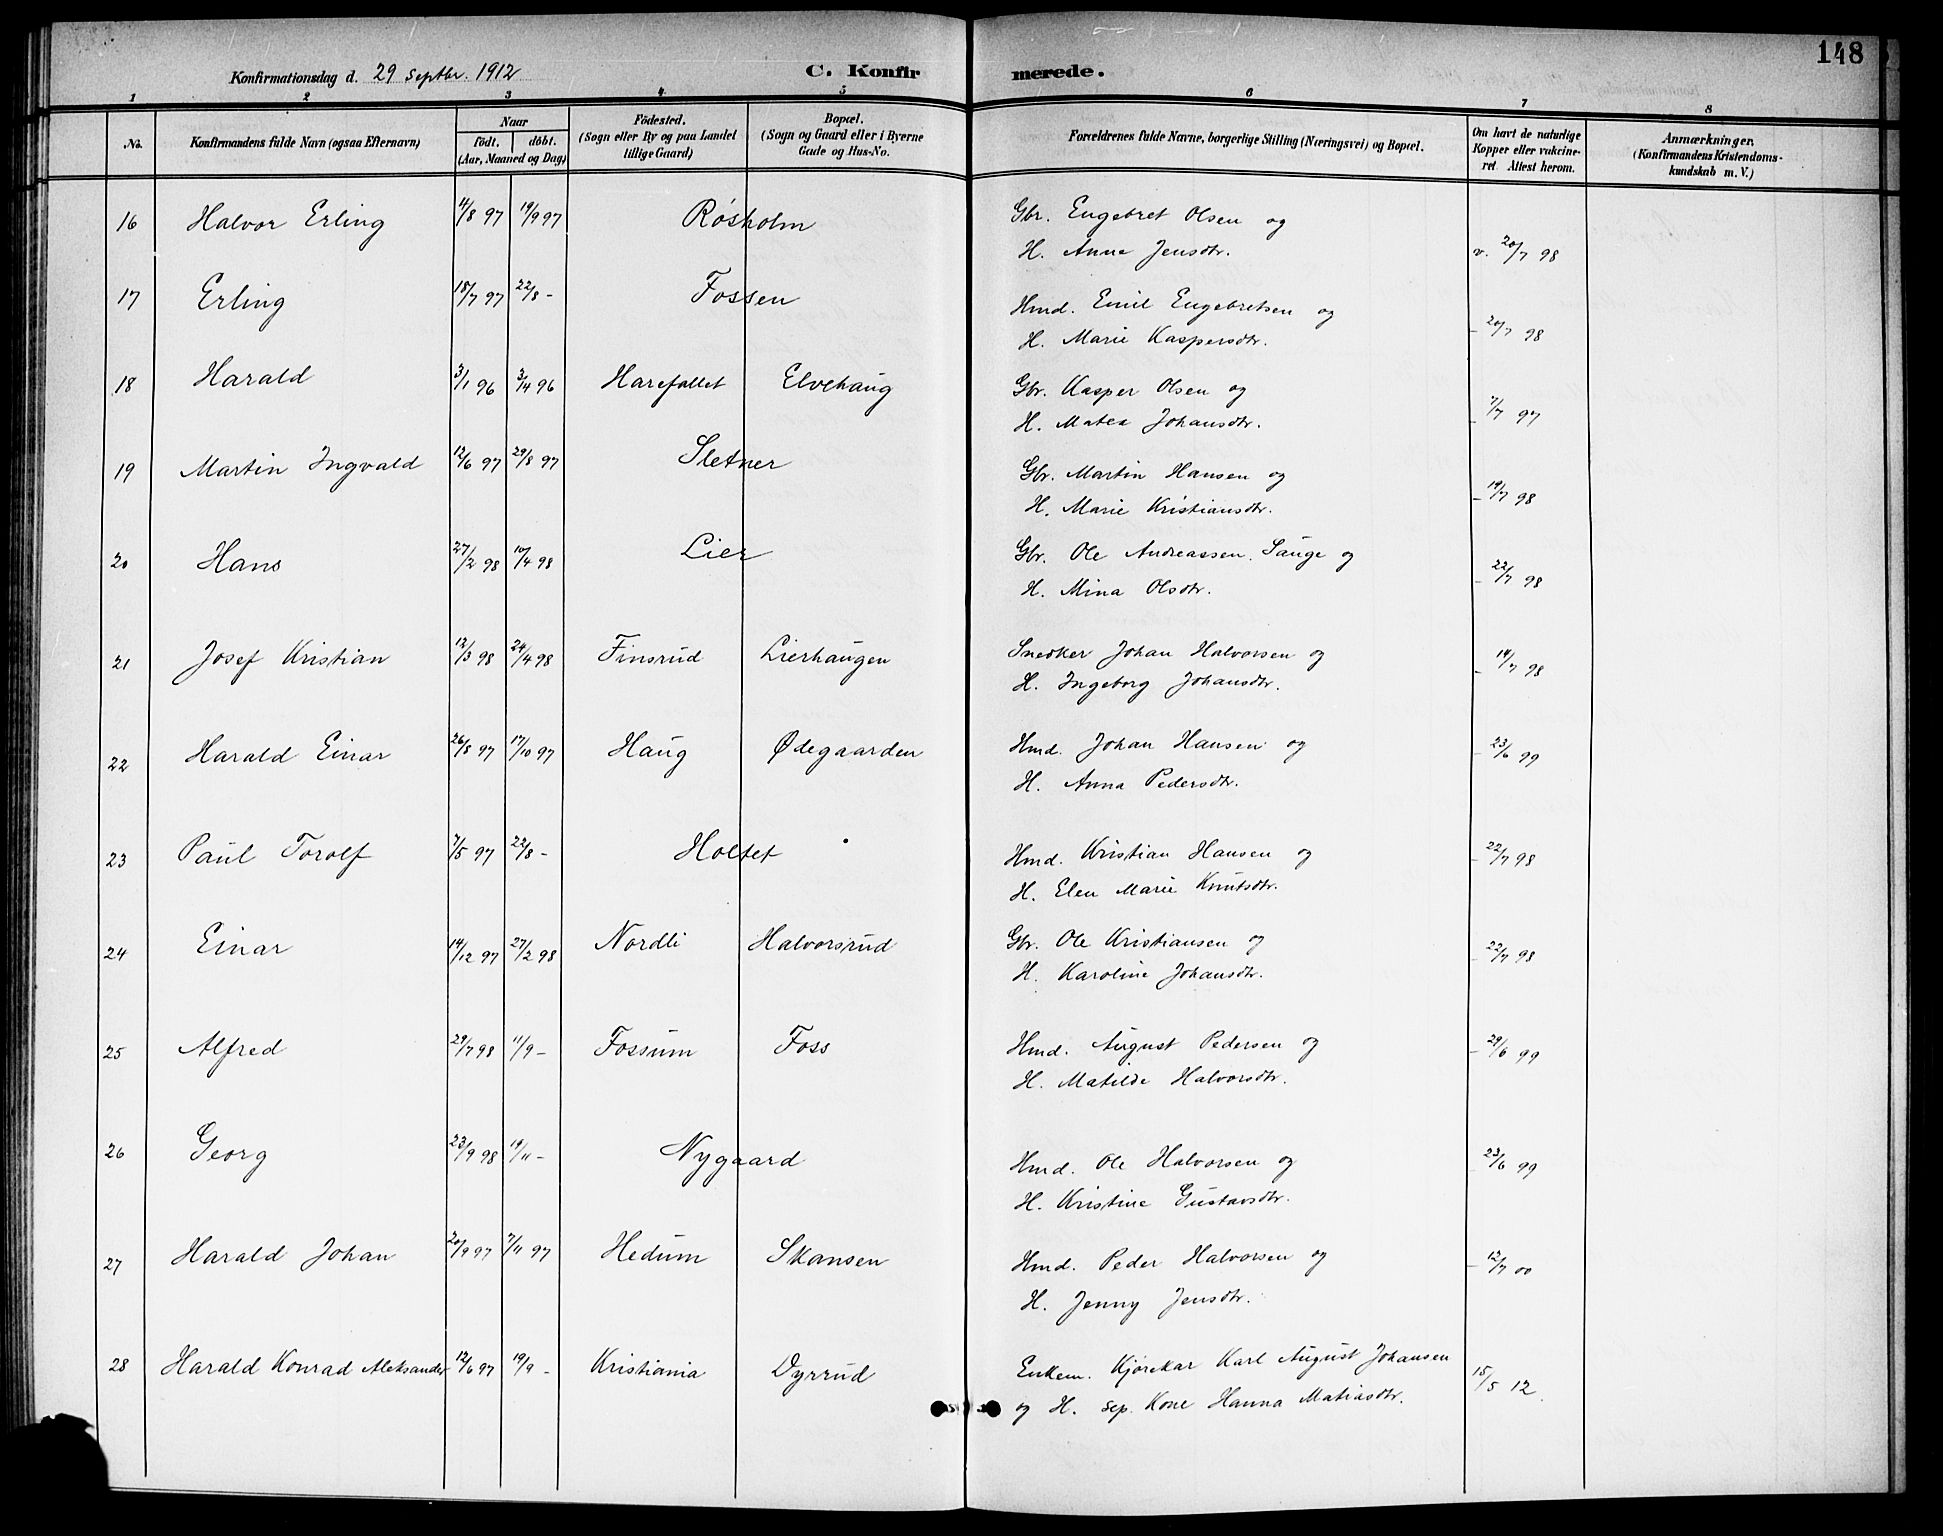 148
Konfirmationsdag d. 29 Septbr. 1912 C. Konfirmerede.
1 2 3 4 5 6 7 8
No. Konfirmandens fulde Navn (ogsaa Efternavn) Naar födt. döbt. (Aar, Maaned og Dag) Födested. (Sogn eller By og paa Landet tillige Gaard) Bopæl. (Sogn og Gaard eller i Byerne Gade og Hus-No. Forældrenes fulde Navne, borgerlige Stilling (Næringsvei) og Bopæl. Om havt de naturlige Kopper eller vakcineret Attest herom. Anmærkninger. (Konfirmandens Kristendomskundskab m. V.)
16 Halvor Erling 4/8 97 19/9 97 Røsholm Gbr. Engebret Olsen og
H. Anne Jensdtr. v. 20/7 98
17 Erling 18/7 97 22/8 - Fossen Hmd. Emil Engebretsen og
H. Marie Kaspersdtr. - 20/7 98
18 Harald 3/1 96 3/4 96 Harefallet Elvehaug Gbr. Kasper Olsen og
H. Matea Johansdtr. - 7/7 97
19 Martin Ingvald 12/6 97 29/8 97 Sletner Gbr. Martin Hansen og
H. Marie Kristiansdtr. - 19/7 98
20 Hans 27/2 98 10/4 98 Lier Gbr. Ole Andreassen Sauge og
H. Mina Olsdtr. - 22/7 98
21 Josef Kristian 12/3 98 24/4 98 Finsrud Lierhaugen Snedker Johan Halvorsen og
H. Ingeborg Johansdtr. - 14/7 98
22 Harald Einar 26/8 97 17/10 97 Haug Ødegaarden Hmd. Johan Hansen og
H. Anna Pedersdtr. - 23/6 99
23 Paul Torolf 7/5 97 22/8 - Holtet Hmd. Kristian Hansen og
H. Elen Marie Knutsdtr. - 22/7 98
24 Einar 14/12 97 27/2 98 Nordli Halvorsrud Gbr. Ole Kristiansen og
H. Karoline Johansdtr. - 22/7 98
25 Alfred 29/7 98 11/9 - Fossum Foss Hmd. August Pedersen og
H. Matilde Halvorsdtr. - 29/6 99
26 Georg 23/9 98 19/11 - Nygaard Hmd. Ole Halvorsen og
H. Kristine Gustavsdtr. - 23/6 99
27 Harald Johan 20/9 97 7/11 97 Hedum Skansen Hmd. Peder Halvorsen og
H. Jenny Jensdtr. - 12/7 00
28 Harald Konrad Aleksander 12/6 97 19/9 - Kristiania Dyrrud Enkem. Kjørekar Karl August Johansen
og H. sep. Kone Hanna Matiasdtr. 15/5 12.